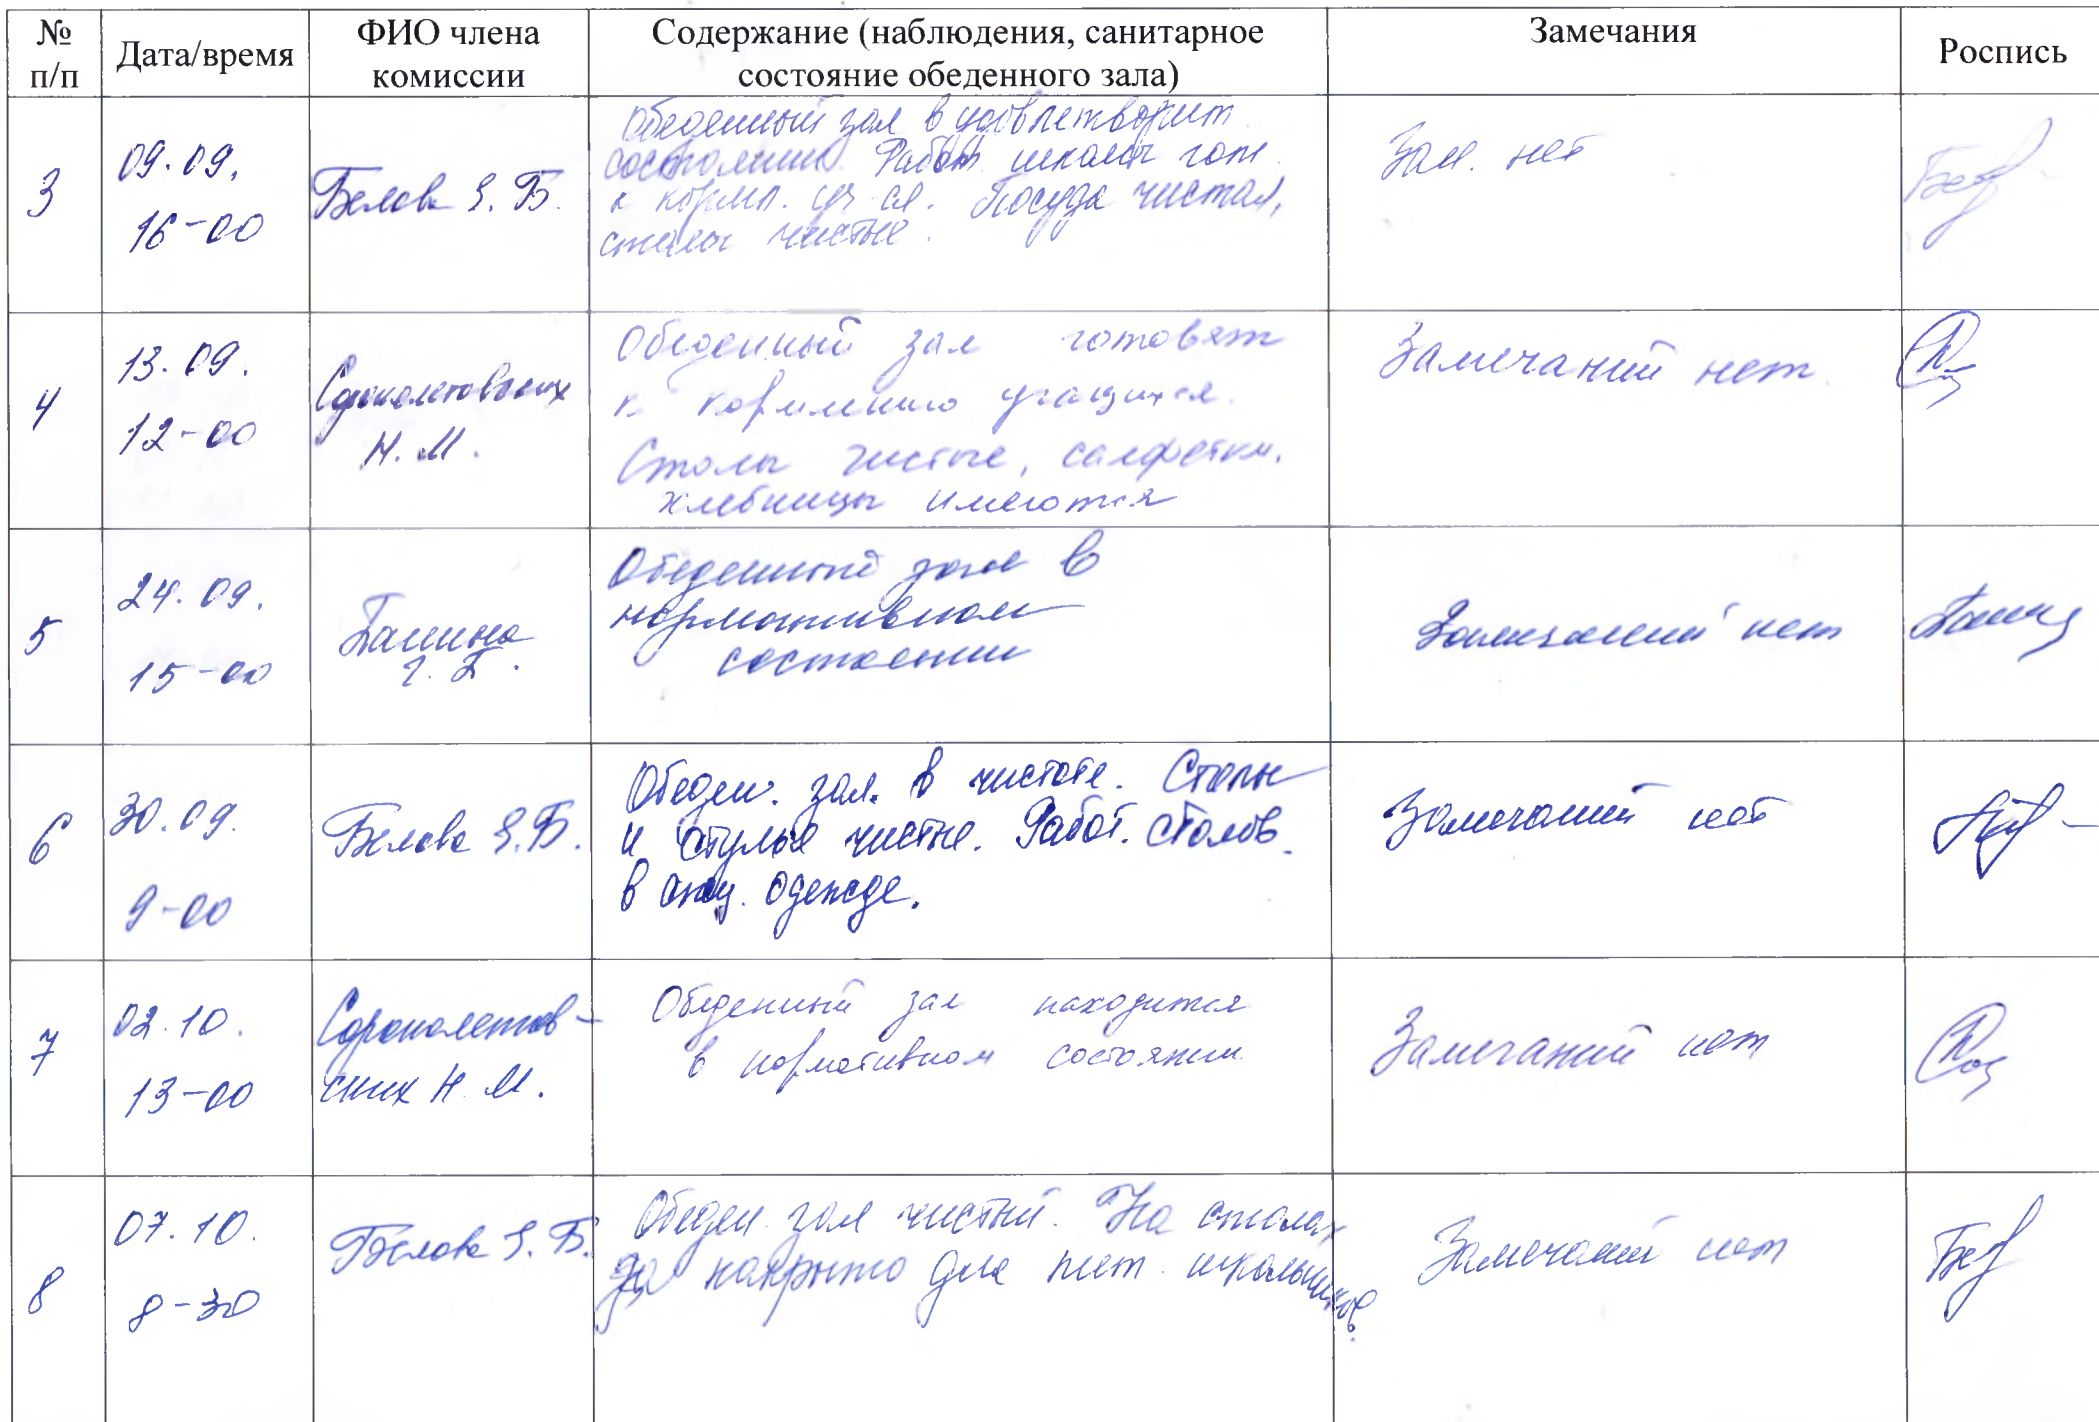 № п/п Дата/время ФИО члена комиссии Содержание (наблюдения, санитарное состояние обеденного зала) Замечания Роспись
3
09.09.
16-00
Белова З.Б.
Обеденный зал в удовлетворит.
состоянии. Работ. школы гот.
к кормл. уч-ся. Посуда чистая,
столы чистые.
Зам. нет
4
13.09.
12-00
Сороколетовских
Н.М.
Обеденный зал готовят
к кормлению учащихся.
Столы чистые, салфетки,
хлебницы имеются
Замечаний нет
5
24.09.
15-00
Обеденный зал в
нормативном
состоянии
Замечаний нет
6
30.09.
9-00
Белова З.Б.
Обеден. зал в чистоте. Столы
и стулья чистые. Работ. столов.
в спец. одежде.
Замечаний нет
7
02.10.
13-00
Сороколетов-
ских Н.М.
Обеденный зал находится
в нормативном состоянии.
Замечаний нет
8
07.10.
8-30
Белова З.Б.
Обеден. зал чистый. На столах
накрыто для пит. школьников.
Замечаний нет